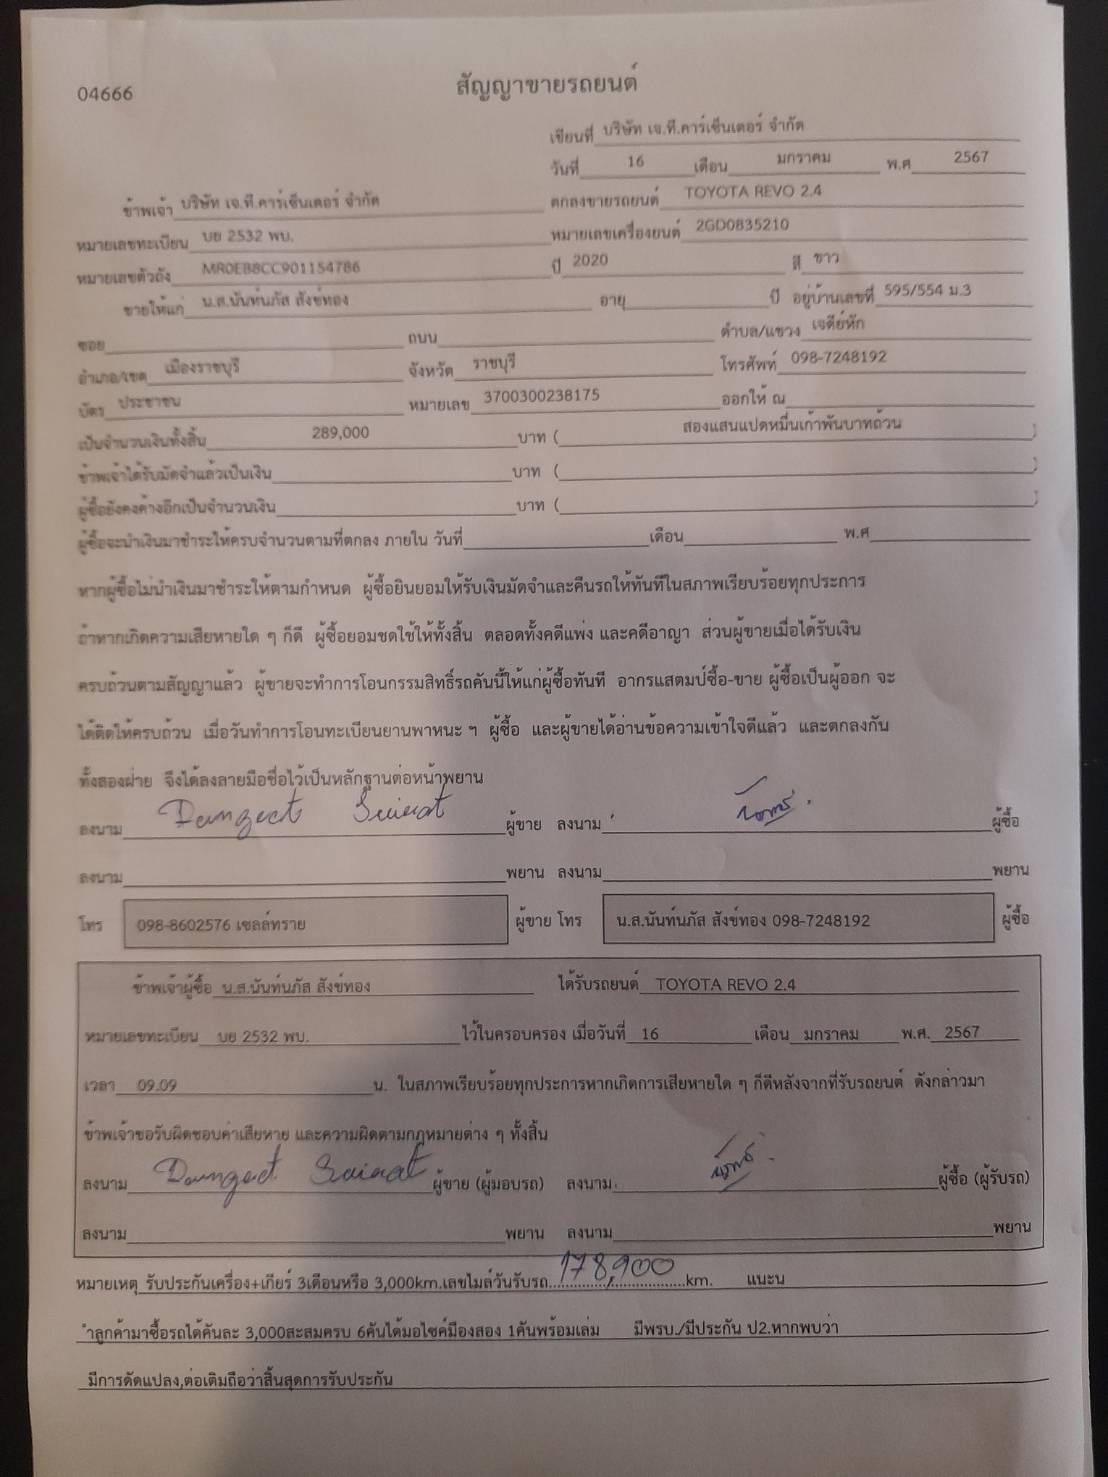 04666
สัญญาขายรถยนต์
เขียนที่ บริษัท เจ.ที.คาร์เซ็นเตอร์ จำกัด
วันที่ 16 เดือน มกราคม พ.ศ 2567
ข้าพเจ้า บริษัท เจ.ที.คาร์เซ็นเตอร์ จำกัด ตกลงขายรถยนต์ TOYOTA REVO 2.4
หมายเลขทะเบียน บย 2532 พบ. หมายเลขเครื่องยนต์ 2GD0835210
หมายเลขตัวถัง MR0EB8CC901154786 ปี 2020 สี ขาว
ขายให้แก่ น.ส.นันท์นภัส สังข์ทอง อายุ ปี อยู่บ้านเลขที่ 595/554 ม.3
ซอย ถนน ตำบล/แขวง เจดีย์หัก
อำเภอ/เขต เมืองราชบุรี จังหวัด ราชบุรี โทรศัพท์ 098-7248192
บัตร ประชาชน หมายเลข 3700300238175 ออกให้ ณ
เป็นจำนวนเงินทั้งสิ้น 289,000 บาท ( สองแสนแปดหมื่นเก้าพันบาทถ้วน )
ข้าพเจ้าได้รับมัดจำแล้วเป็นเงิน บาท ( )
ผู้ซื้อยังคงค้างอีกเป็นจำนวนเงิน บาท ( )
ผู้ซื้อจะนำเงินมาชำระให้ครบจำนวนตามที่ตกลง ภายใน วันที่ เดือน พ.ศ
หากผู้ซื้อไม่นำเงินมาชำระให้ตามกำหนด ผู้ซื้อยินยอมให้รับเงินมัดจำและคืนรถให้ทันทีในสภาพเรียบร้อยทุกประการ
ถ้าหากเกิดความเสียหายใด ๆ ก็ดี ผู้ซื้อยอมชดใช้ให้ทั้งสิ้น ตลอดทั้งคดีแพ่ง และคดีอาญา ส่วนผู้ขายเมื่อได้รับเงิน
ครบถ้วนตามสัญญาแล้ว ผู้ขายจะทำการโอนกรรมสิทธิ์รถคันนี้ให้แก่ผู้ซื้อทันที อากรแสตมป์ซื้อ-ขาย ผู้ซื้อเป็นผู้ออก จะ
ได้ติดให้ครบถ้วน เมื่อวันทำการโอนทะเบียนยานพาหนะ ฯ ผู้ซื้อ และผู้ขายได้อ่านข้อความเข้าใจดีแล้ว และตกลงกัน
ทั้งสองฝ่าย จึงได้ลงลายมือชื่อไว้เป็นหลักฐานต่อหน้าพยาน
ลงนาม ผู้ขาย ลงนาม ผู้ซื้อ
ลงนาม พยาน ลงนาม พยาน
โทร 098-8602576 เซลล์ทราย ผู้ขาย โทร น.ส.นันท์นภัส สังข์ทอง 098-7248192 ผู้ซื้อ
ข้าพเจ้าผู้ซื้อ น.ส.นันท์นภัส สังข์ทอง ได้รับรถยนต์ TOYOTA REVO 2.4
หมายเลขทะเบียน บย 2532 พบ. ไว้ในครอบครอง เมื่อวันที่ 16 เดือน มกราคม พ.ศ. 2567
เวลา 09.09 น. ในสภาพเรียบร้อยทุกประการหากเกิดการเสียหายใด ๆ ก็ดีหลังจากที่รับรถยนต์ ดังกล่าวมา
ข้าพเจ้าขอรับผิดชอบค่าเสียหาย และความผิดตามกฎหมายต่าง ๆ ทั้งสิ้น
ลงนาม ผู้ขาย (ผู้มอบรถ) ลงนาม ผู้ซื้อ (ผู้รับรถ)
ลงนาม พยาน ลงนาม พยาน
หมายเหตุ รับประกันเครื่อง+เกียร์ 3เดือนหรือ 3,000km.เลขไมล์วันรับรถ 178,900 km. แนะน
ำลูกค้ามาซื้อรถได้คันละ 3,000สะสมครบ 6คันได้มอไซค์มือสอง 1คันพร้อมเล่ม มีพรบ./มีประกัน ป2.หากพบว่า
มีการดัดแปลง,ต่อเติมถือว่าสิ้นสุดการรับประกัน